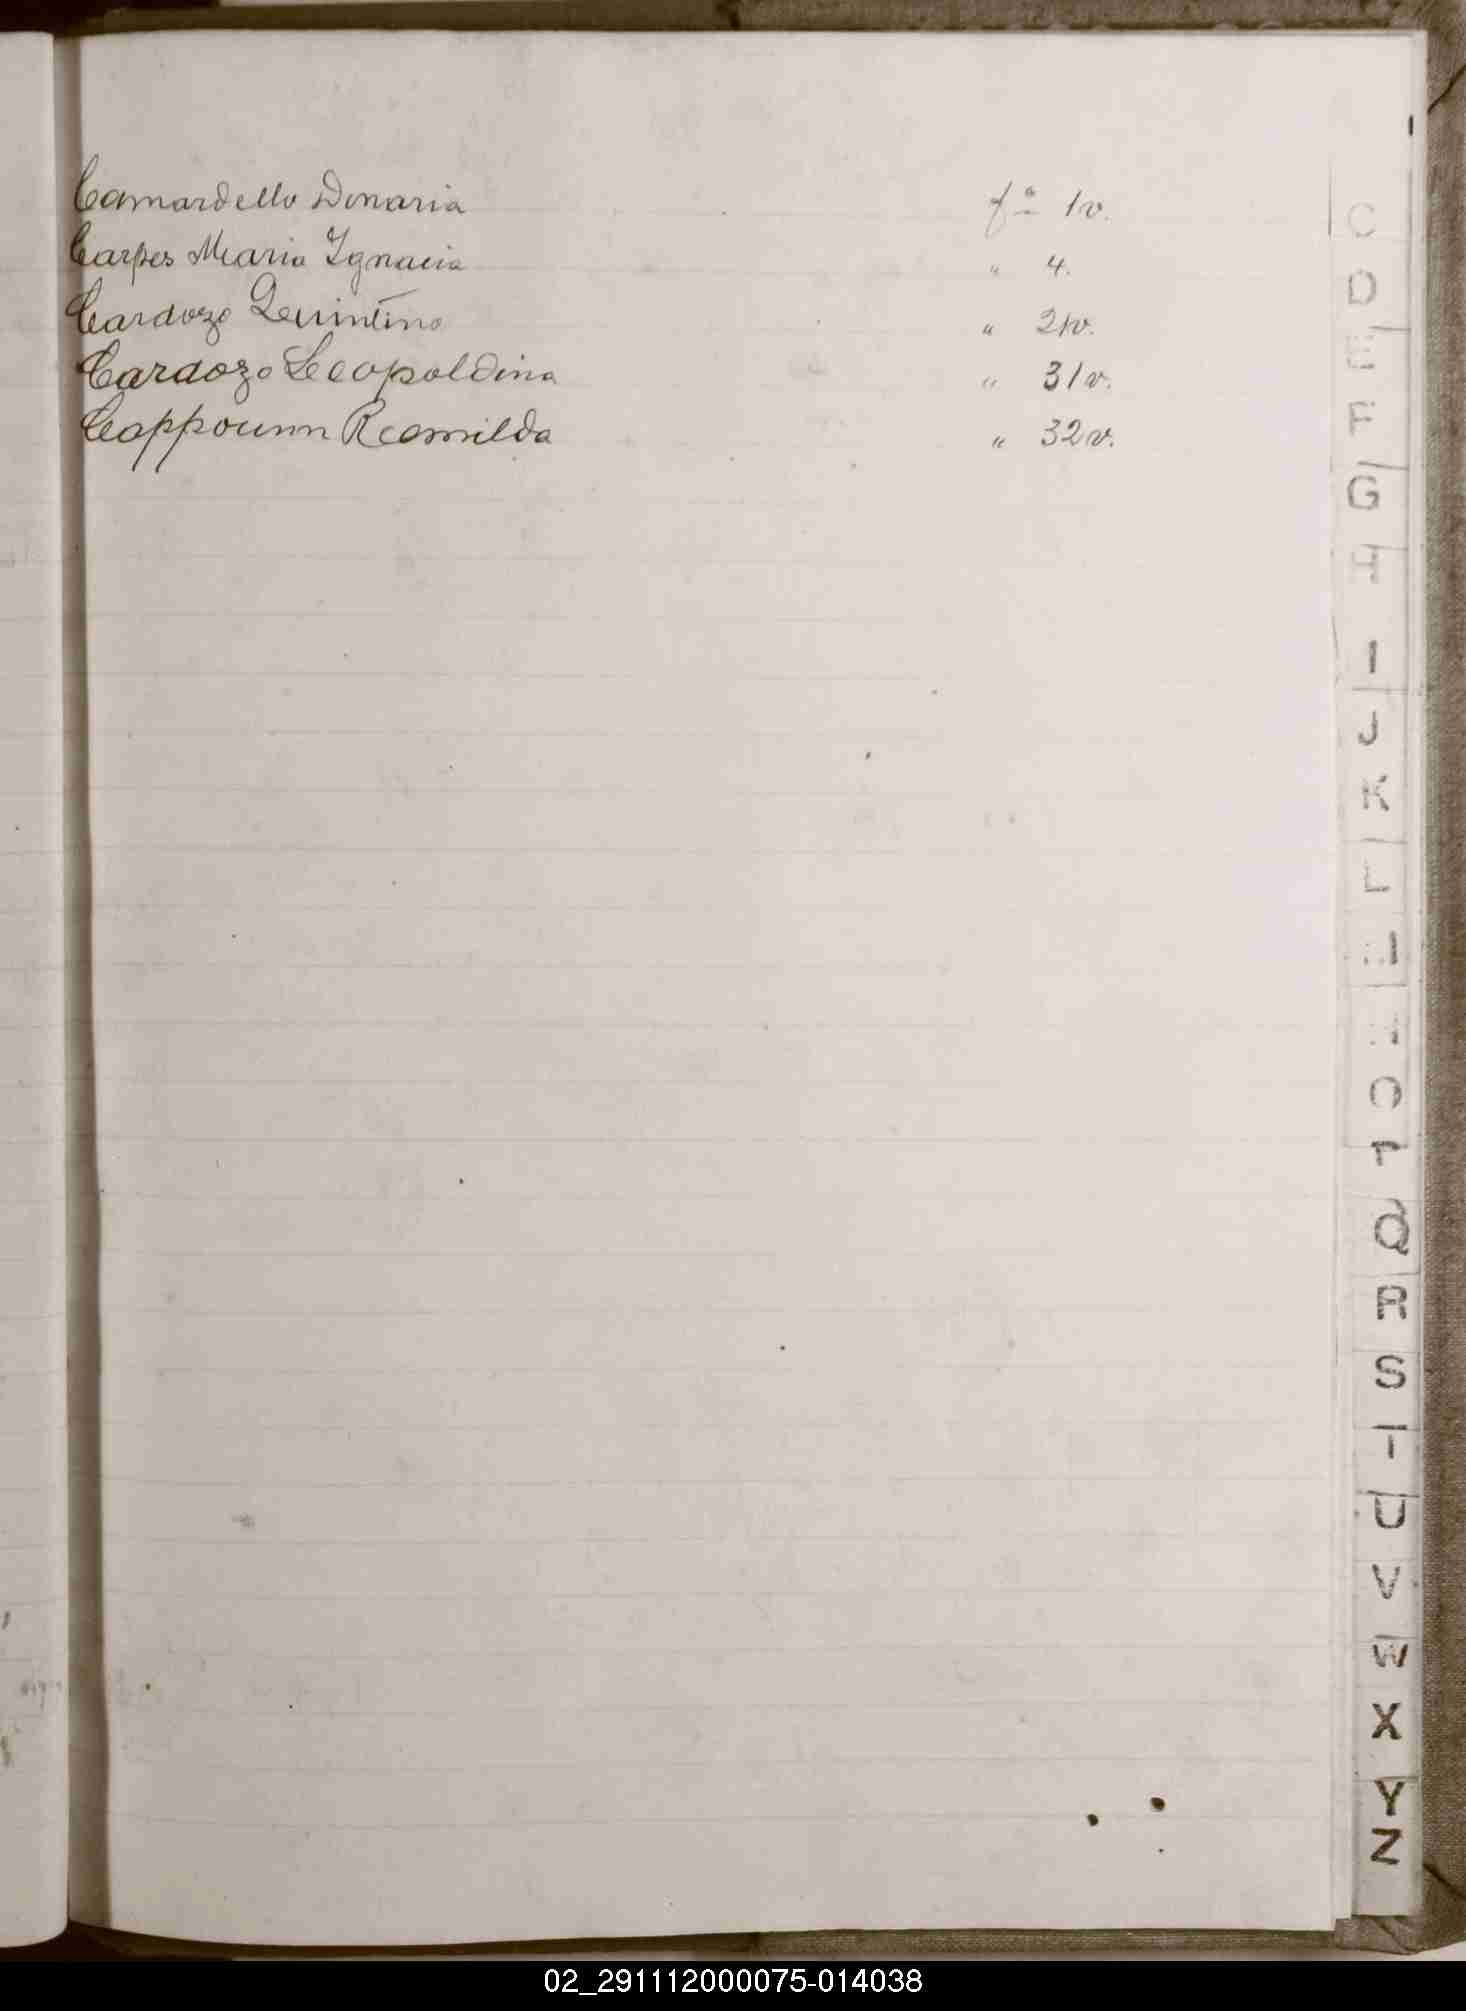 Camardello Donaria fª 1v.
Carpes Maria Ignacia " 4.
Cardozo Quintino " 21v.
Cardozo Leopoldina " 31v.
Romilda " 32v.
C
D
E
F
G
H
I
J
K
L
M
N
O
P
Q
R
S
T
U
V
W
X
Y
Z
02_291112000075-014038